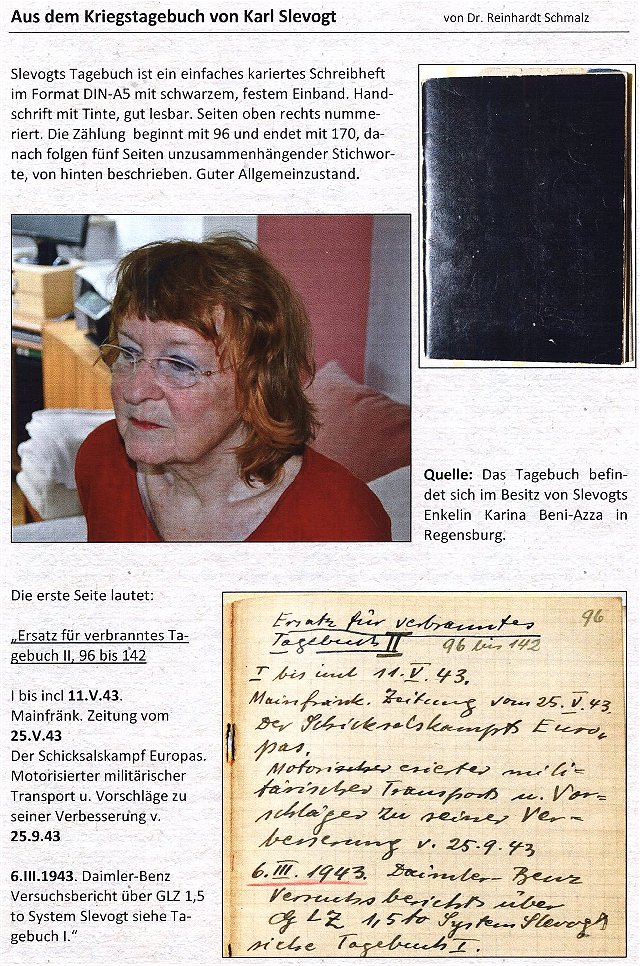 Aus dem Kriegstagebuch von Karl Slevogt
von Dr. Reinhardt Schmalz
Slevogts Tagebuch ist ein einfaches kariertes Schreibheft
im Format DIN-A5 mit schwarzem, festem Einband. Hand-
schrift mit Tinte, gut lesbar. Seiten oben rechts numme-
riert. Die Zählung beginnt mit 96 und endet mit 170, da-
nach folgen fünf Seiten unzusammenhängender Stichwor-
te, von hinten beschrieben. Guter Allgemeinzustand.
Quelle: Das Tagebuch befin-
det sich im Besitz von Slevogts
Enkelin Karina Beni-Azza in
Regensburg.
Die erste Seite lautet:
„Ersatz für verbranntes Ta-
gebuch II, 96 bis 142
I bis incl 11.V.43.
Mainfränk. Zeitung vom
25.V.43
Der Schicksalskampf Europas.
Motorisierter militärischer
Transport u. Vorschläge zu
seiner Verbesserung v.
25.9.43
6.III.1943. Daimler-Benz
Versuchsbericht über GLZ 1,5
to System Slevogt siehe Ta-
gebuch I.“
96
Ersatz für verbranntes
Tagebuch II 96 bis 142
I bis incl 11.V.43.
Mainfränk. Zeitung vom 25.V.43
Der Schicksalskampf Euro-
pas.
Motorisierter mili-
tärischer Transport u. Vor-
schläge zu seiner Ver-
besserung v. 25.9.43
6.III.1943. Daimler-Benz
Versuchsbericht über
GLZ 1,5 to System Slevogt
siehe Tagebuch I.